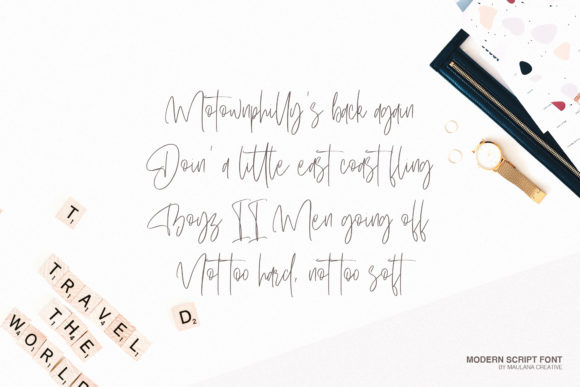 Motownphilly's back again
Doin' a little east coast fling
Boyz II Men going off
Not too hard, not too soft
T
TRAVEL
THE
WORLD
D
MODERN SCRIPT FONT
BY MAULANA CREATIVE